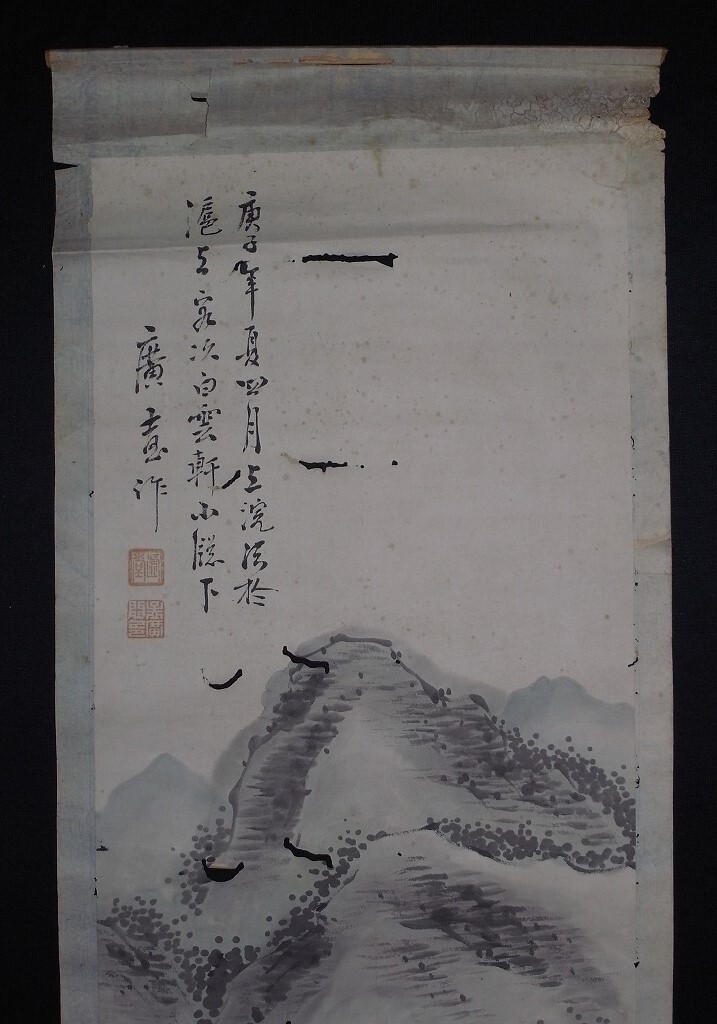 庚子年夏四月上浣法於
滬上客次白雲軒小隱下
廣畫作